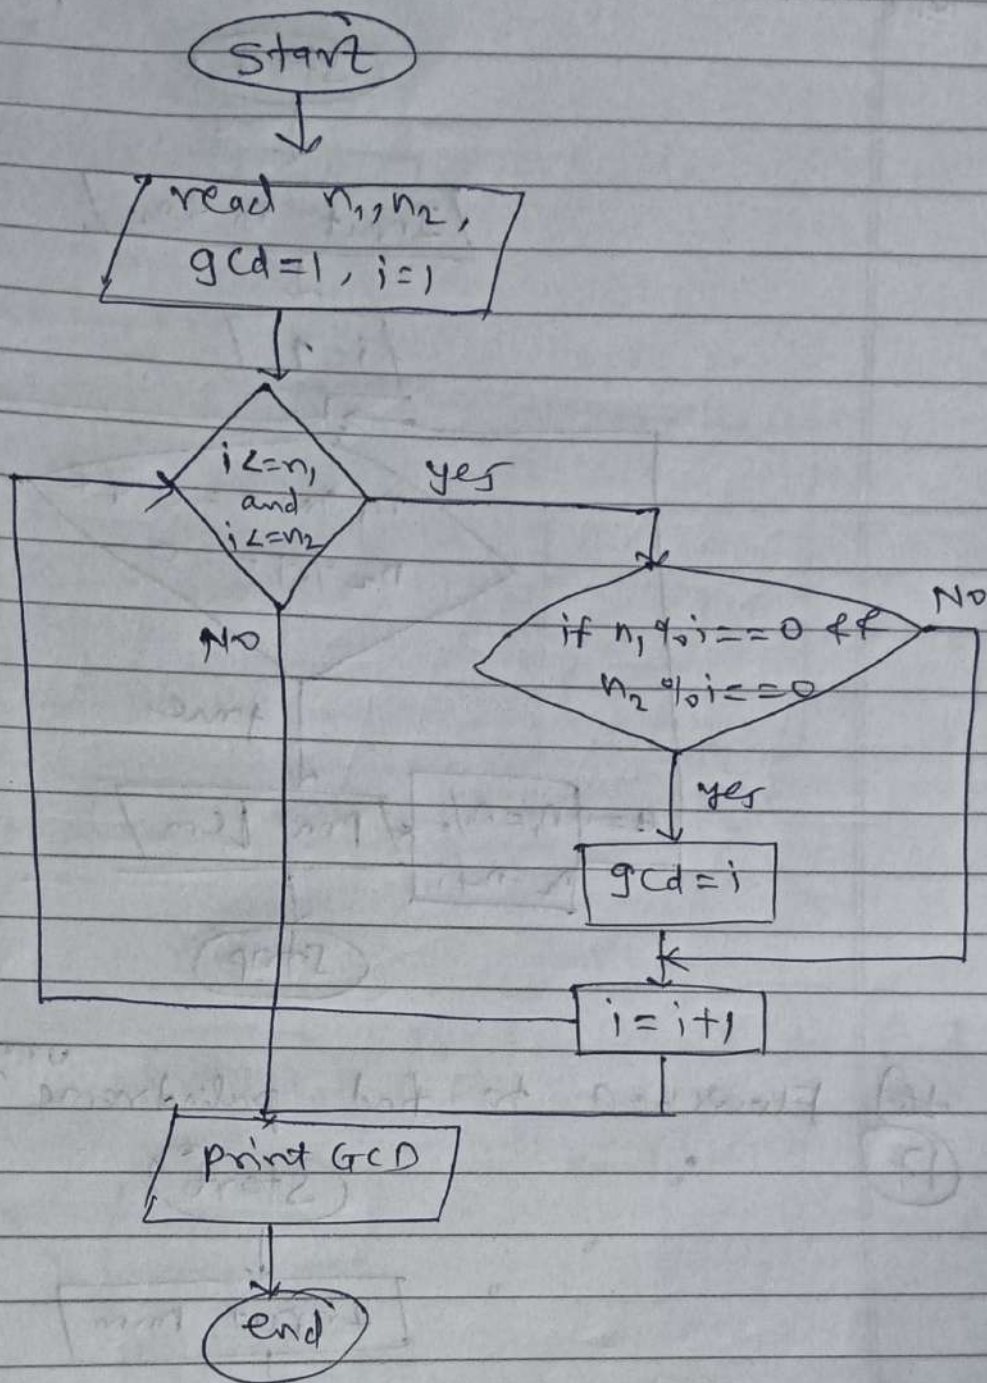 Start
read n1, n2,
gcd=1, i=1
i<=n1
and
i<=n2
yes
NO
if n1 % i == 0 &&
n2 % i == 0
NO
yes
gcd = i
i = i+1
print GCD
end